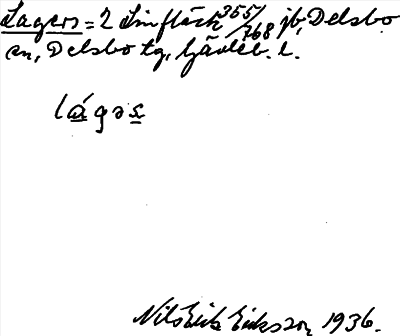 Lagers = 2 Linfläck 355/768 jb, Delsbo
sn, Delsbo tg, Gävleb. l.
lágəs
Nils Erik Eriksson 1936.